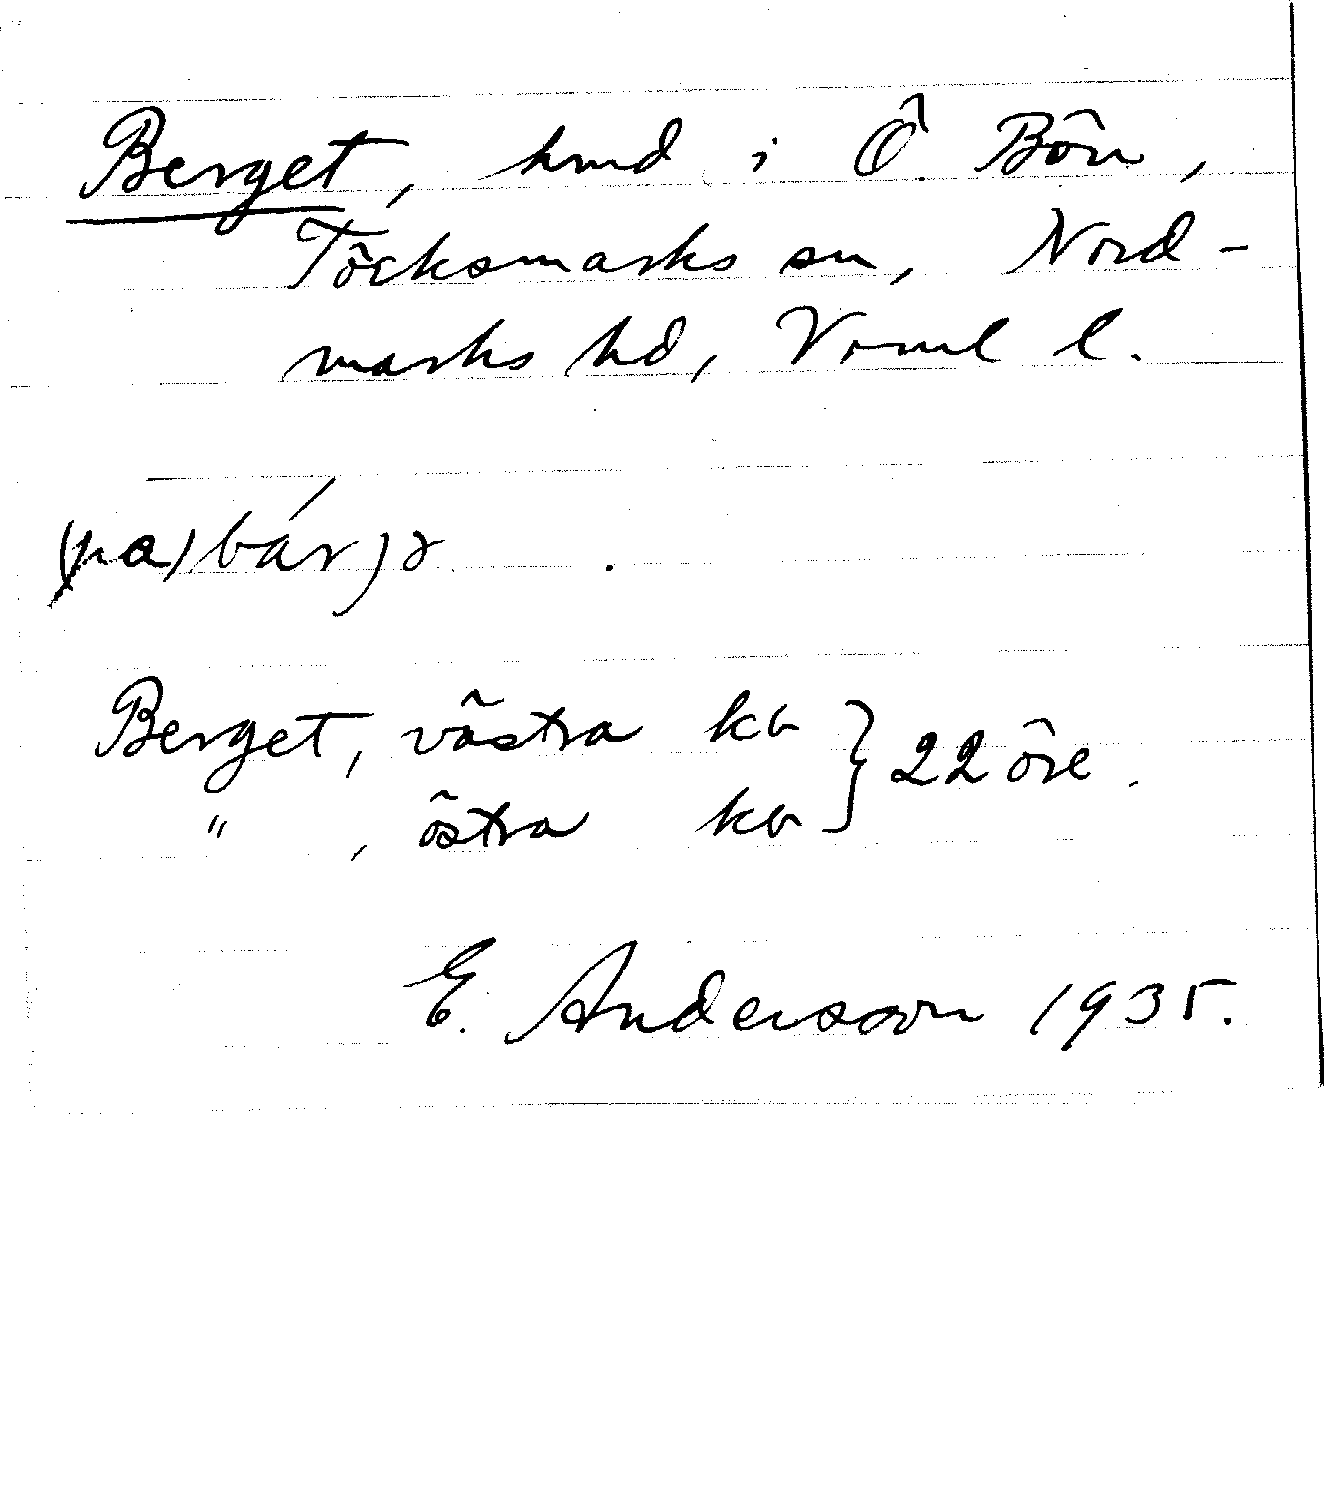 Berget, hmd i Ö. Bön,
Töcksmarks sn, Nord-
marks hd, Värml l.
(pa) bárjə.
Berget, västra kb } 22 öre.
" , östra kb
E. Anderson 1935.